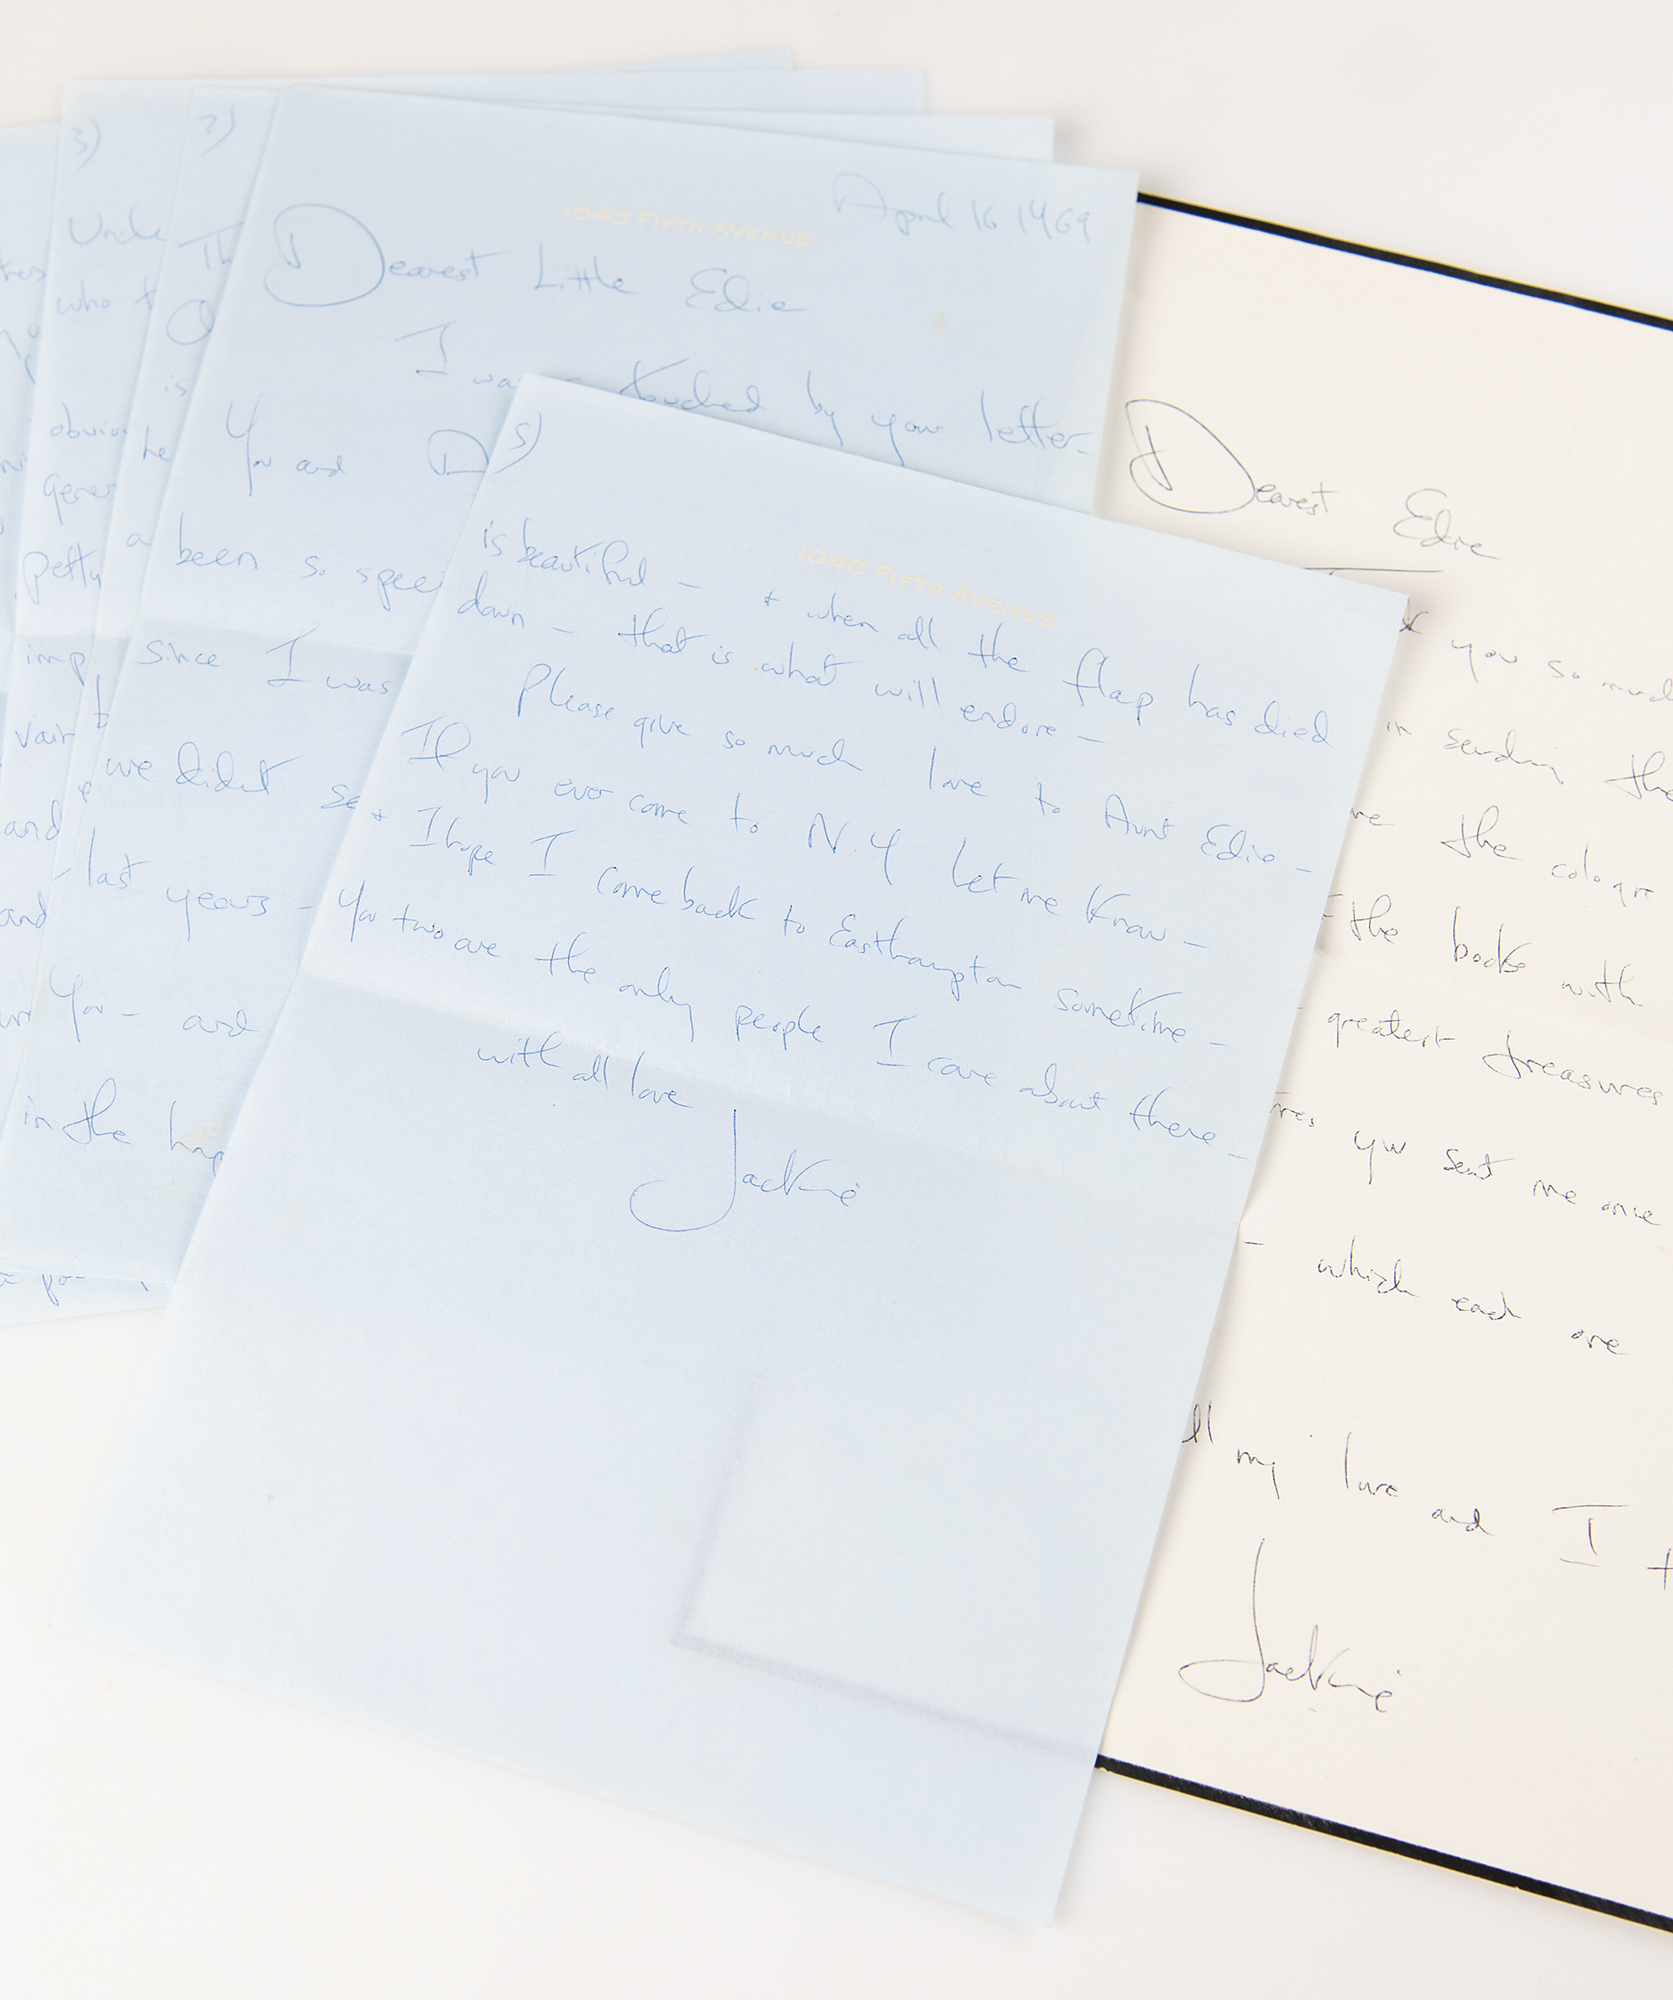 3)
Uncle
who
obvio
gener
petty
imp
vain
and
and
2)
Th
is
he
a
1040 FIFTH AVENUE
April 16 1969
Dearest Little Edie
I was touched by your letter-
You and D
been so spec
since I was
we didnt se
last years -
You - and
in the hap
5)
1040 FIFTH AVENUE
is beautiful - + when all the flap has died
down - that is what will endure -
Please give so much love to Aunt Edie -
If you ever come to N.Y let me know -
+ I hope I come back to Easthampton sometime -
You two are the only people I care about there -
with all love
Jackie
Dearest Edie
you so much
in sending the
the cologne
the books with
greatest treasures
you sent me once
- which each are
ll my love and I t
Jackie